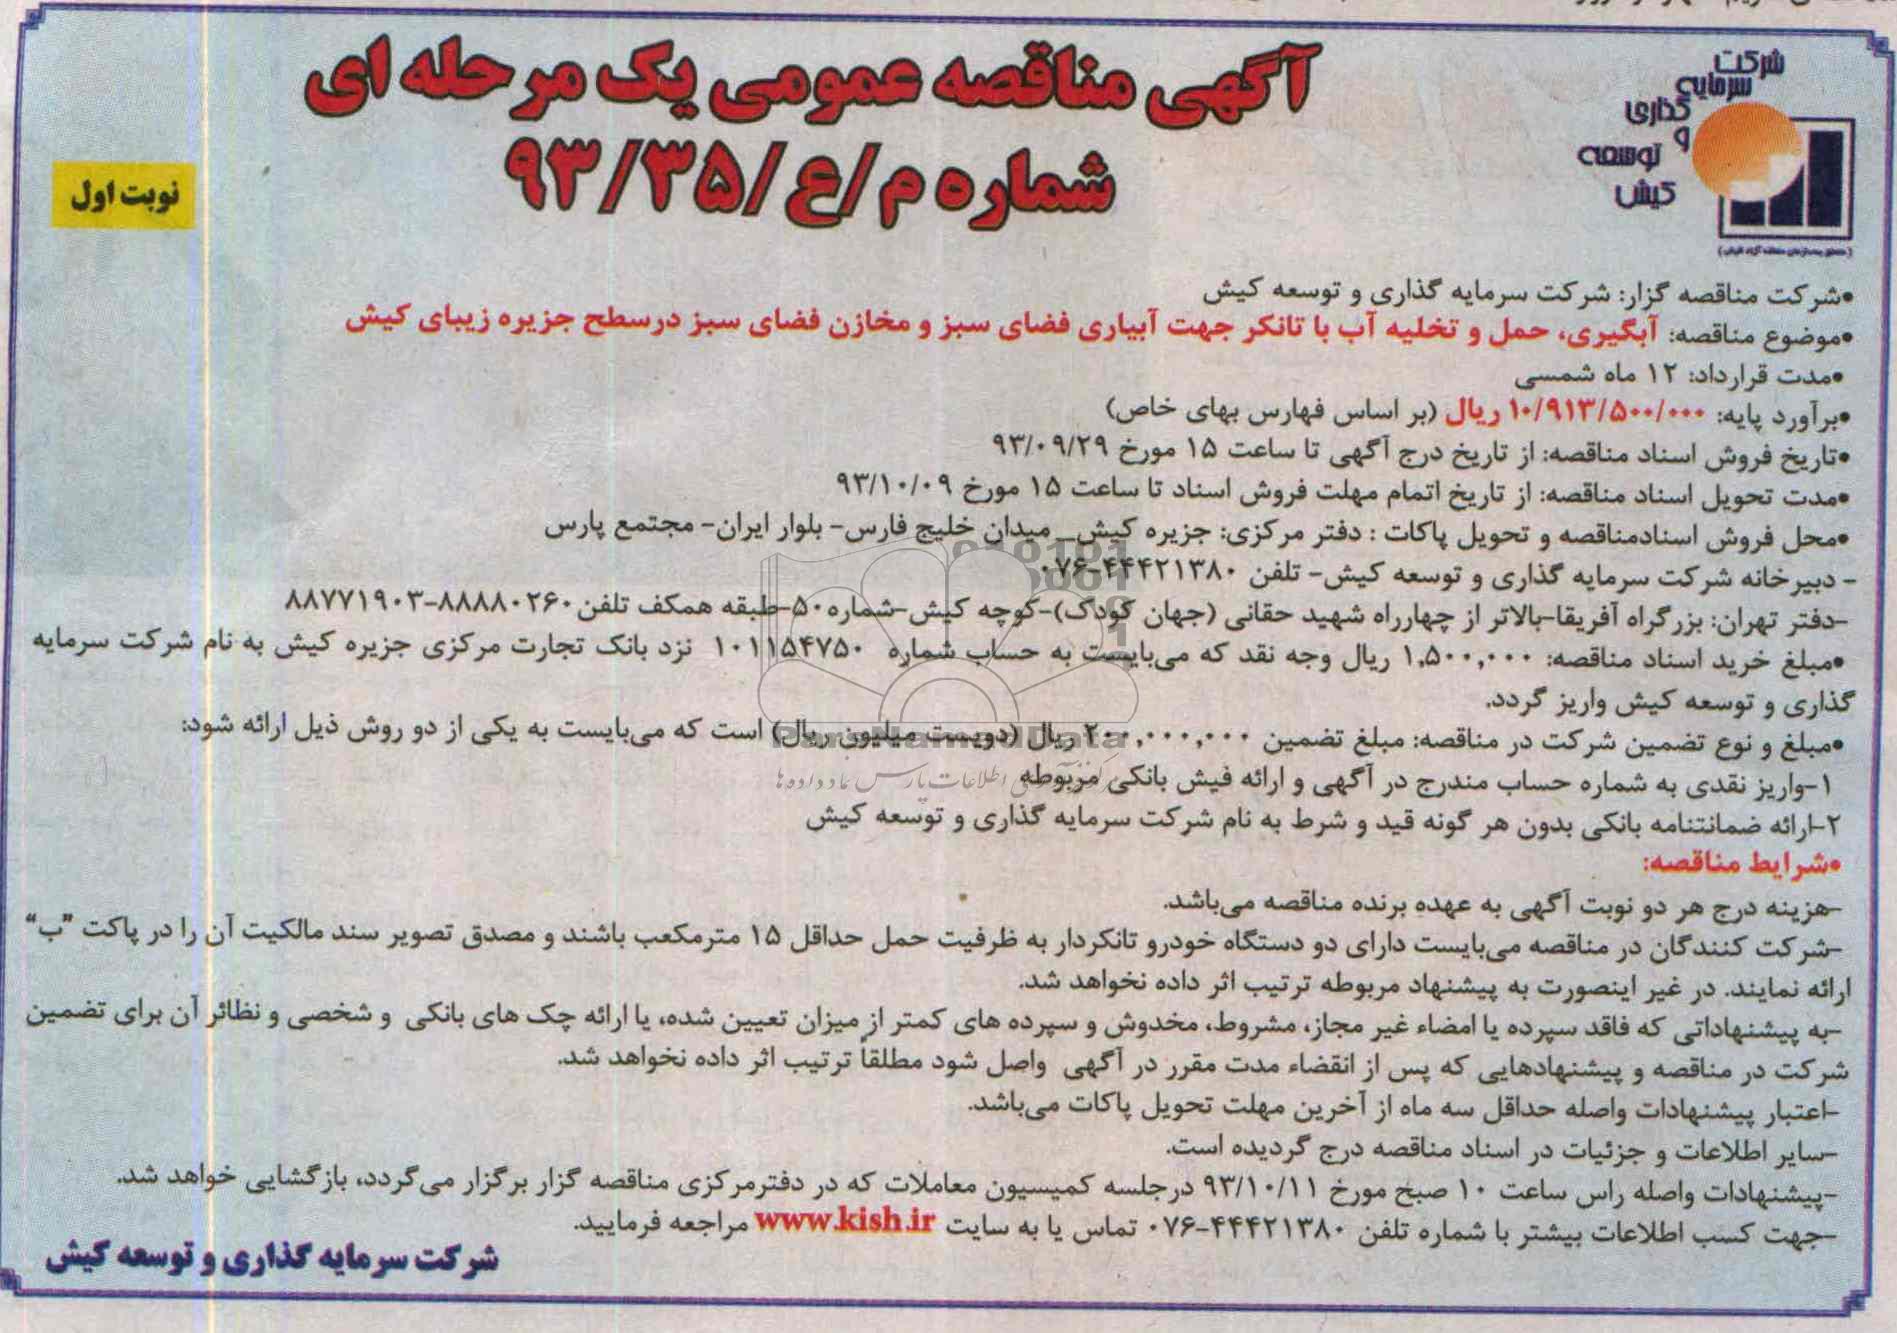 آگهی مناقصه عمومی یک مرحله ای
شماره م/ع/۹۳/۳۵
نوبت اول
شرکت
سرمایه
گذاری
و
توسعه
کیش
•شرکت مناقصه گزار: شرکت سرمایه گذاری و توسعه کیش
•موضوع مناقصه: آبگیری، حمل و تخلیه آب با تانکر جهت آبیاری فضای سبز و مخازن فضای سبز درسطح جزیره زیبای کیش
•مدت قرارداد: ۱۲ ماه شمسی
•برآورد پایه: ۱۰/۹۱۳/۵۰۰/۰۰۰ ریال (بر اساس فهارس بهای خاص)
•تاریخ فروش اسناد مناقصه: از تاریخ درج آگهی تا ساعت ۱۵ مورخ ۹۳/۰۹/۲۹
•مدت تحویل اسناد مناقصه: از تاریخ اتمام مهلت فروش اسناد تا ساعت ۱۵ مورخ ۹۳/۱۰/۰۹
•محل فروش اسنادمناقصه و تحویل پاکات : دفتر مرکزی: جزیره کیش_ میدان خلیج فارس- بلوار ایران- مجتمع پارس
- دبیرخانه شرکت سرمایه گذاری و توسعه کیش- تلفن ۴۴۴۲۱۳۸۰-۰۷۶
-دفتر تهران: بزرگراه آفریقا-بالاتر از چهارراه شهید حقانی (جهان کودک)-کوچه کیش-شماره۵۰-طبقه همکف تلفن ۸۸۸۸۰۲۶۰-۸۸۷۷۱۹۰۳
•مبلغ خرید اسناد مناقصه: ۱,۵۰۰,۰۰۰ ریال وجه نقد که می‌بایست به حساب شماره ۱۰۱۱۵۴۷۵۰ نزد بانک تجارت مرکزی جزیره کیش به نام شرکت سرمایه
گذاری و توسعه کیش واریز گردد.
•مبلغ و نوع تضمین شرکت در مناقصه: مبلغ تضمین ۲۰۰,۰۰۰,۰۰۰ ریال (دویست میلیون ریال) است که می‌بایست به یکی از دو روش ذیل ارائه شود:
۱-واریز نقدی به شماره حساب مندرج در آگهی و ارائه فیش بانکی مربوطه
۲-ارائه ضمانتنامه بانکی بدون هر گونه قید و شرط به نام شرکت سرمایه گذاری و توسعه کیش
•شرایط مناقصه:
-هزینه درج هر دو نوبت آگهی به عهده برنده مناقصه می‌باشد.
-شرکت کنندگان در مناقصه می‌بایست دارای دو دستگاه خودرو تانکردار به ظرفیت حمل حداقل ۱۵ مترمکعب باشند و مصدق تصویر سند مالکیت آن را در پاکت "ب"
ارائه نمایند. در غیر اینصورت به پیشنهاد مربوطه ترتیب اثر داده نخواهد شد.
-به پیشنهاداتی که فاقد سپرده یا امضاء غیر مجاز، مشروط، مخدوش و سپرده های کمتر از میزان تعیین شده، یا ارائه چک های بانکی و شخصی و نظائر آن برای تضمین
شرکت در مناقصه و پیشنهادهایی که پس از انقضاء مدت مقرر در آگهی واصل شود مطلقاً ترتیب اثر داده نخواهد شد.
-اعتبار پیشنهادات واصله حداقل سه ماه از آخرین مهلت تحویل پاکات می‌باشد.
-سایر اطلاعات و جزئیات در اسناد مناقصه درج گردیده است.
-پیشنهادات واصله راس ساعت ۱۰ صبح مورخ ۹۳/۱۰/۱۱ درجلسه کمیسیون معاملات که در دفترمرکزی مناقصه گزار برگزار می‌گردد، بازگشایی خواهد شد.
-جهت کسب اطلاعات بیشتر با شماره تلفن ۴۴۴۲۱۳۸۰-۰۷۶ تماس یا به سایت www.kish.ir مراجعه فرمایید.
شرکت سرمایه گذاری و توسعه کیش